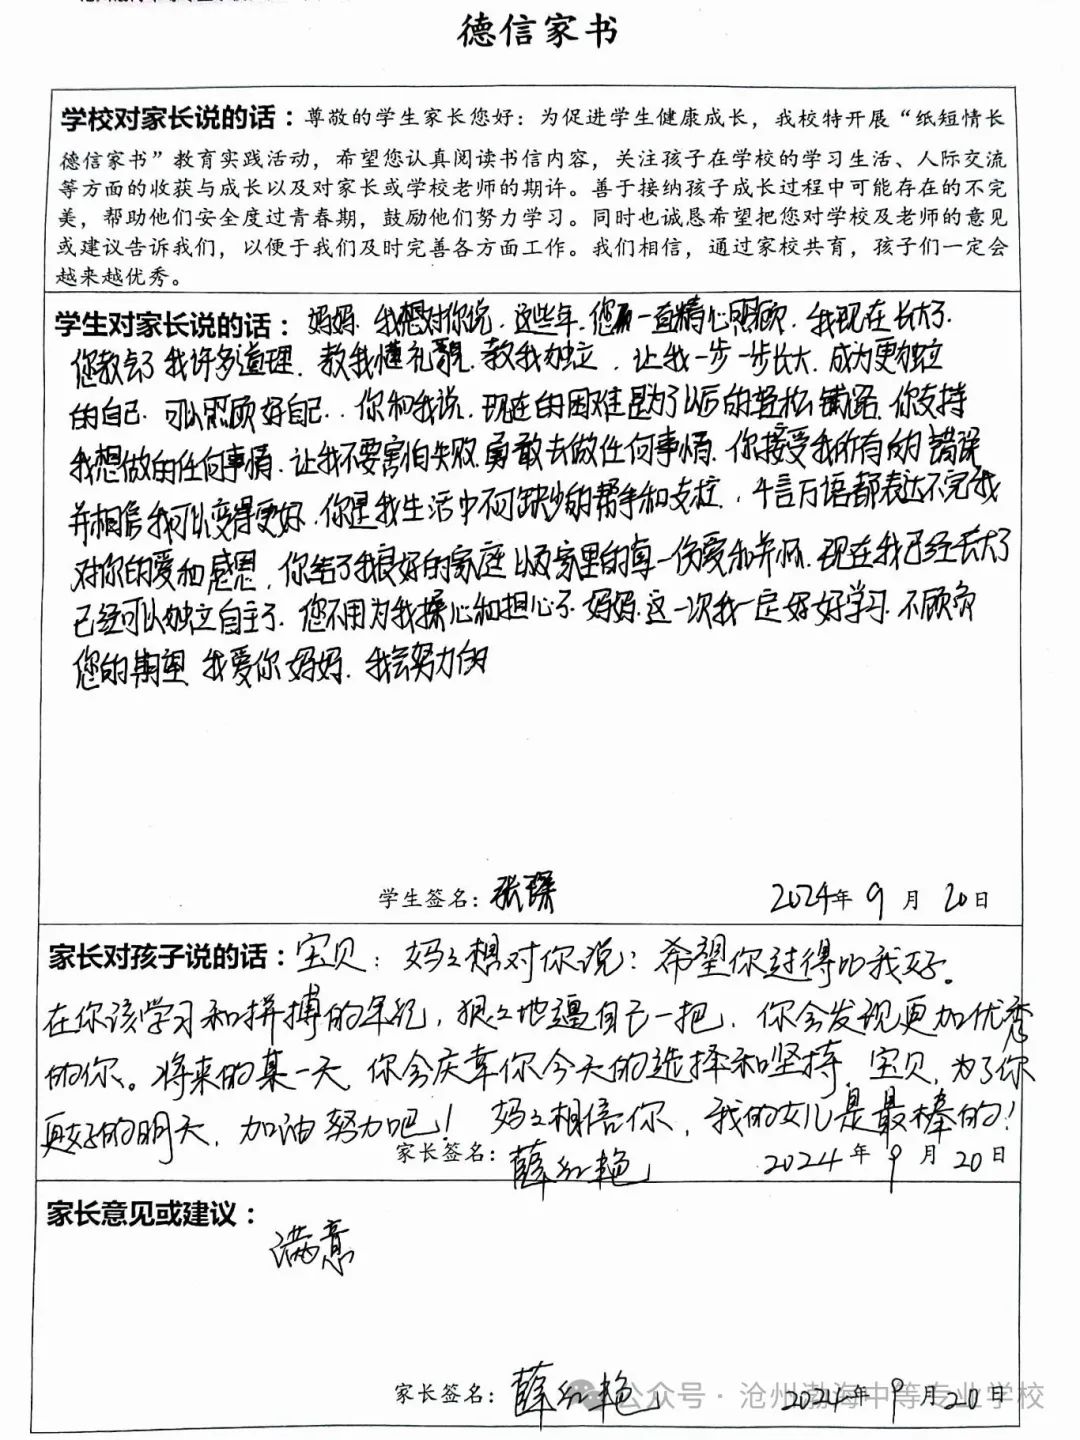 德信家书
学校对家长说的话：尊敬的学生家长您好：为促进学生健康成长，我校特开展“纸短情长
德信家书”教育实践活动，希望您认真阅读书信内容，关注孩子在学校的学习生活、人际交流
等方面的收获与成长以及对家长或学校老师的期许。善于接纳孩子成长过程中可能存在的不完
美，帮助他们安全度过青春期，鼓励他们努力学习。同时也诚恳希望把您对学校及老师的意见
或建议告诉我们，以便于我们及时完善各方面工作。我们相信，通过家校共育，孩子们一定会
越来越优秀。
学生对家长说的话：妈妈.我想对你说.这些年.您一直精心照顾.我现在长大了.
您教会了我许多道理.教我懂礼貌.教我独立.让我一步一步长大.成为更独立
的自己.可以照顾好自己..你和我说.现在的困难是为了以后的轻松铺路.你支持
我想做的任何事情.让我不要害怕失败.勇敢去做任何事情.你接受我所有的错误
并相信我可以变得更好.你是我生活中不可缺少的帮手和支柱.千言万语都表达不完我
对你的爱和感恩.你给了我良好的家庭以及家里的每一份爱和关怀.现在我已经长大了
已经可以独立自主了.您不用为我操心和担心了.妈妈.这一次我一定好好学习.不顾负
您的期望.我爱你妈妈.我会努力的
学生签名：张琛 2024年9月20日
家长对孩子说的话：宝贝：妈妈想对你说：希望你过得比我好。
在你该学习和拼搏的年纪，狠狠地逼自己一把，你会发现更加优秀
的你。将来的某一天，你会庆幸你今天的选择和坚持，宝贝，为了你
更好的明天，加油努力吧！妈妈相信你，我的女儿是最棒的！
家长签名：薛红艳 2024年9月20日
家长意见或建议：
满意
家长签名：薛红艳 2024年9月20日
公众号·沧州渤海中等专业学校